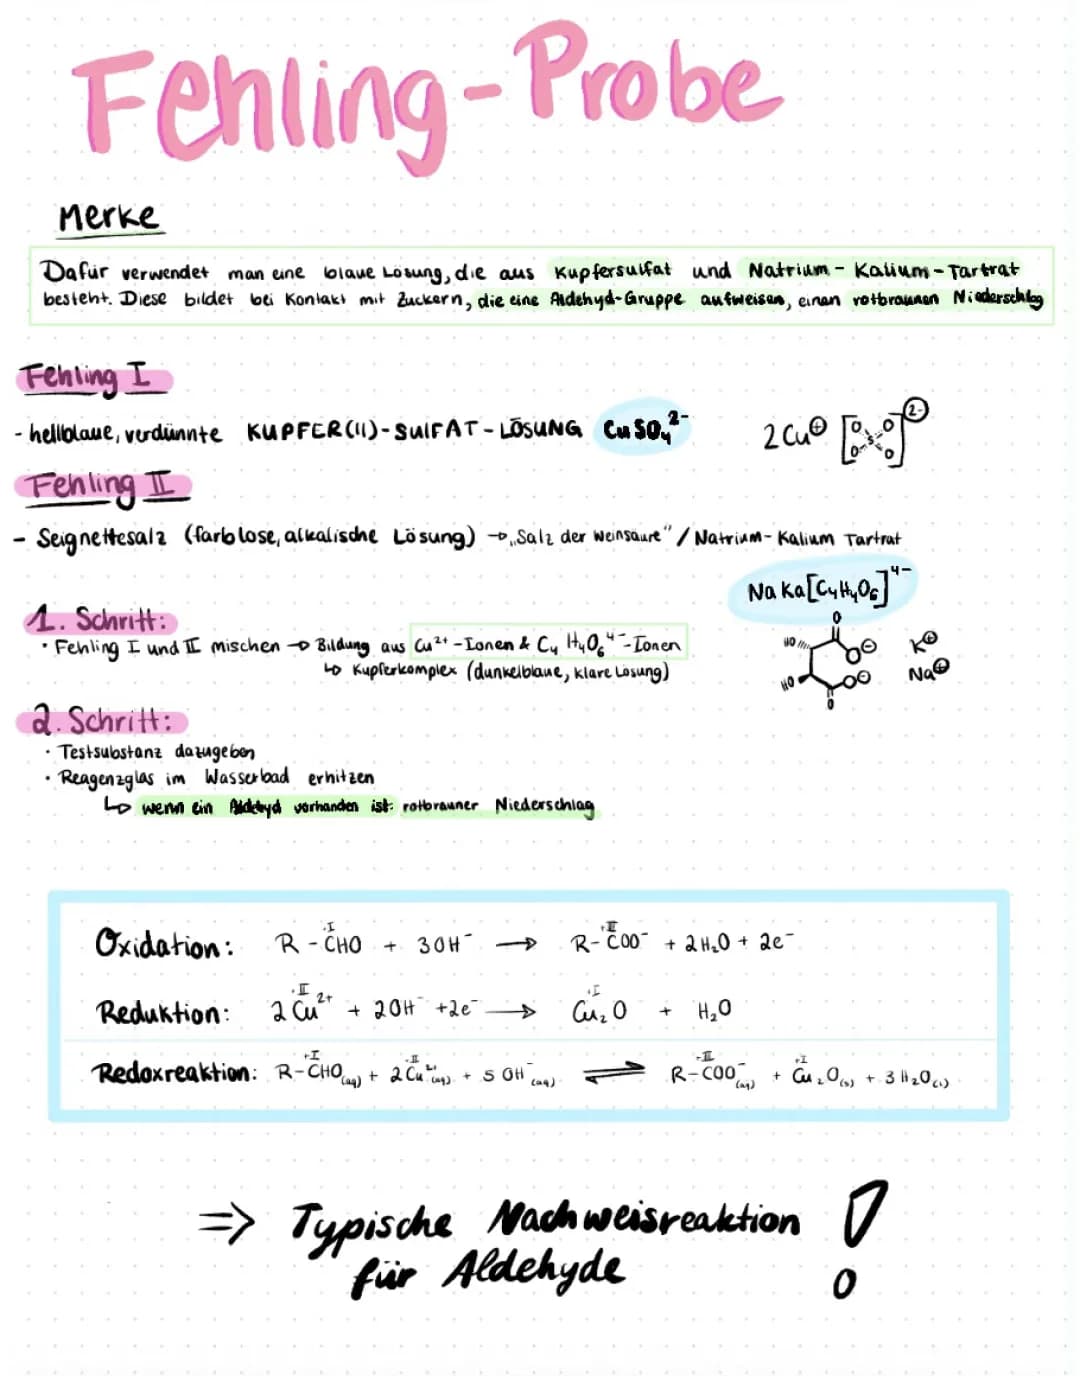 Fehling-Probe
Merke
Dafür verwendet man eine blaue Lösung, die aus Kupfersulfat und Natrium-Kalium-Tartrat
besteht. Diese bildet bei Kontakt mit Zuckern, die eine Aldehyd-Gruppe aufweisen, einen rotbraunen Niederschlag
Fehling I
- hellblaue, verdünnte KUPFER(II)-SUlFAT-LÖSUNG CuSO₄²⁻
2Cu⊕ [O O S O O]²⁻
Fehling II
- Seignettesalz (farblose, alkalische Lösung) → „Salz der Weinsäure" / Natrium-Kalium Tartrat
NaKa[C₄H₄O₆]⁴⁻
1. Schritt:
· Fehling I und II mischen → Bildung aus Cu²⁺-Ionen & C₄H₄O₆⁴⁻-Ionen
↳ Kupferkomplex (dunkelblaue, klare Lösung)
O
HO O⊖ K⊕
HO O⊖ Na⊕
O
2. Schritt:
· Testsubstanz dazugeben
· Reagenzglas im Wasserbad erhitzen
↳ wenn ein Aldehyd vorhanden ist: rotbrauner Niederschlag
+I +III
Oxidation: R-CHO + 3OH⁻ → R-COO⁻ + 2H₂O + 2e⁻
+II +I
Reduktion: 2Cu²⁺ + 2OH⁻ +2e⁻ → Cu₂O + H₂O
+I +II +III +I
Redoxreaktion: R-CHO(aq) + 2Cu²⁺(aq) + 5OH⁻(aq) ⇌ R-COO⁻(aq) + Cu₂O(s) + 3H₂O(l)
⇒ Typische Nachweisreaktion !
für Aldehyde